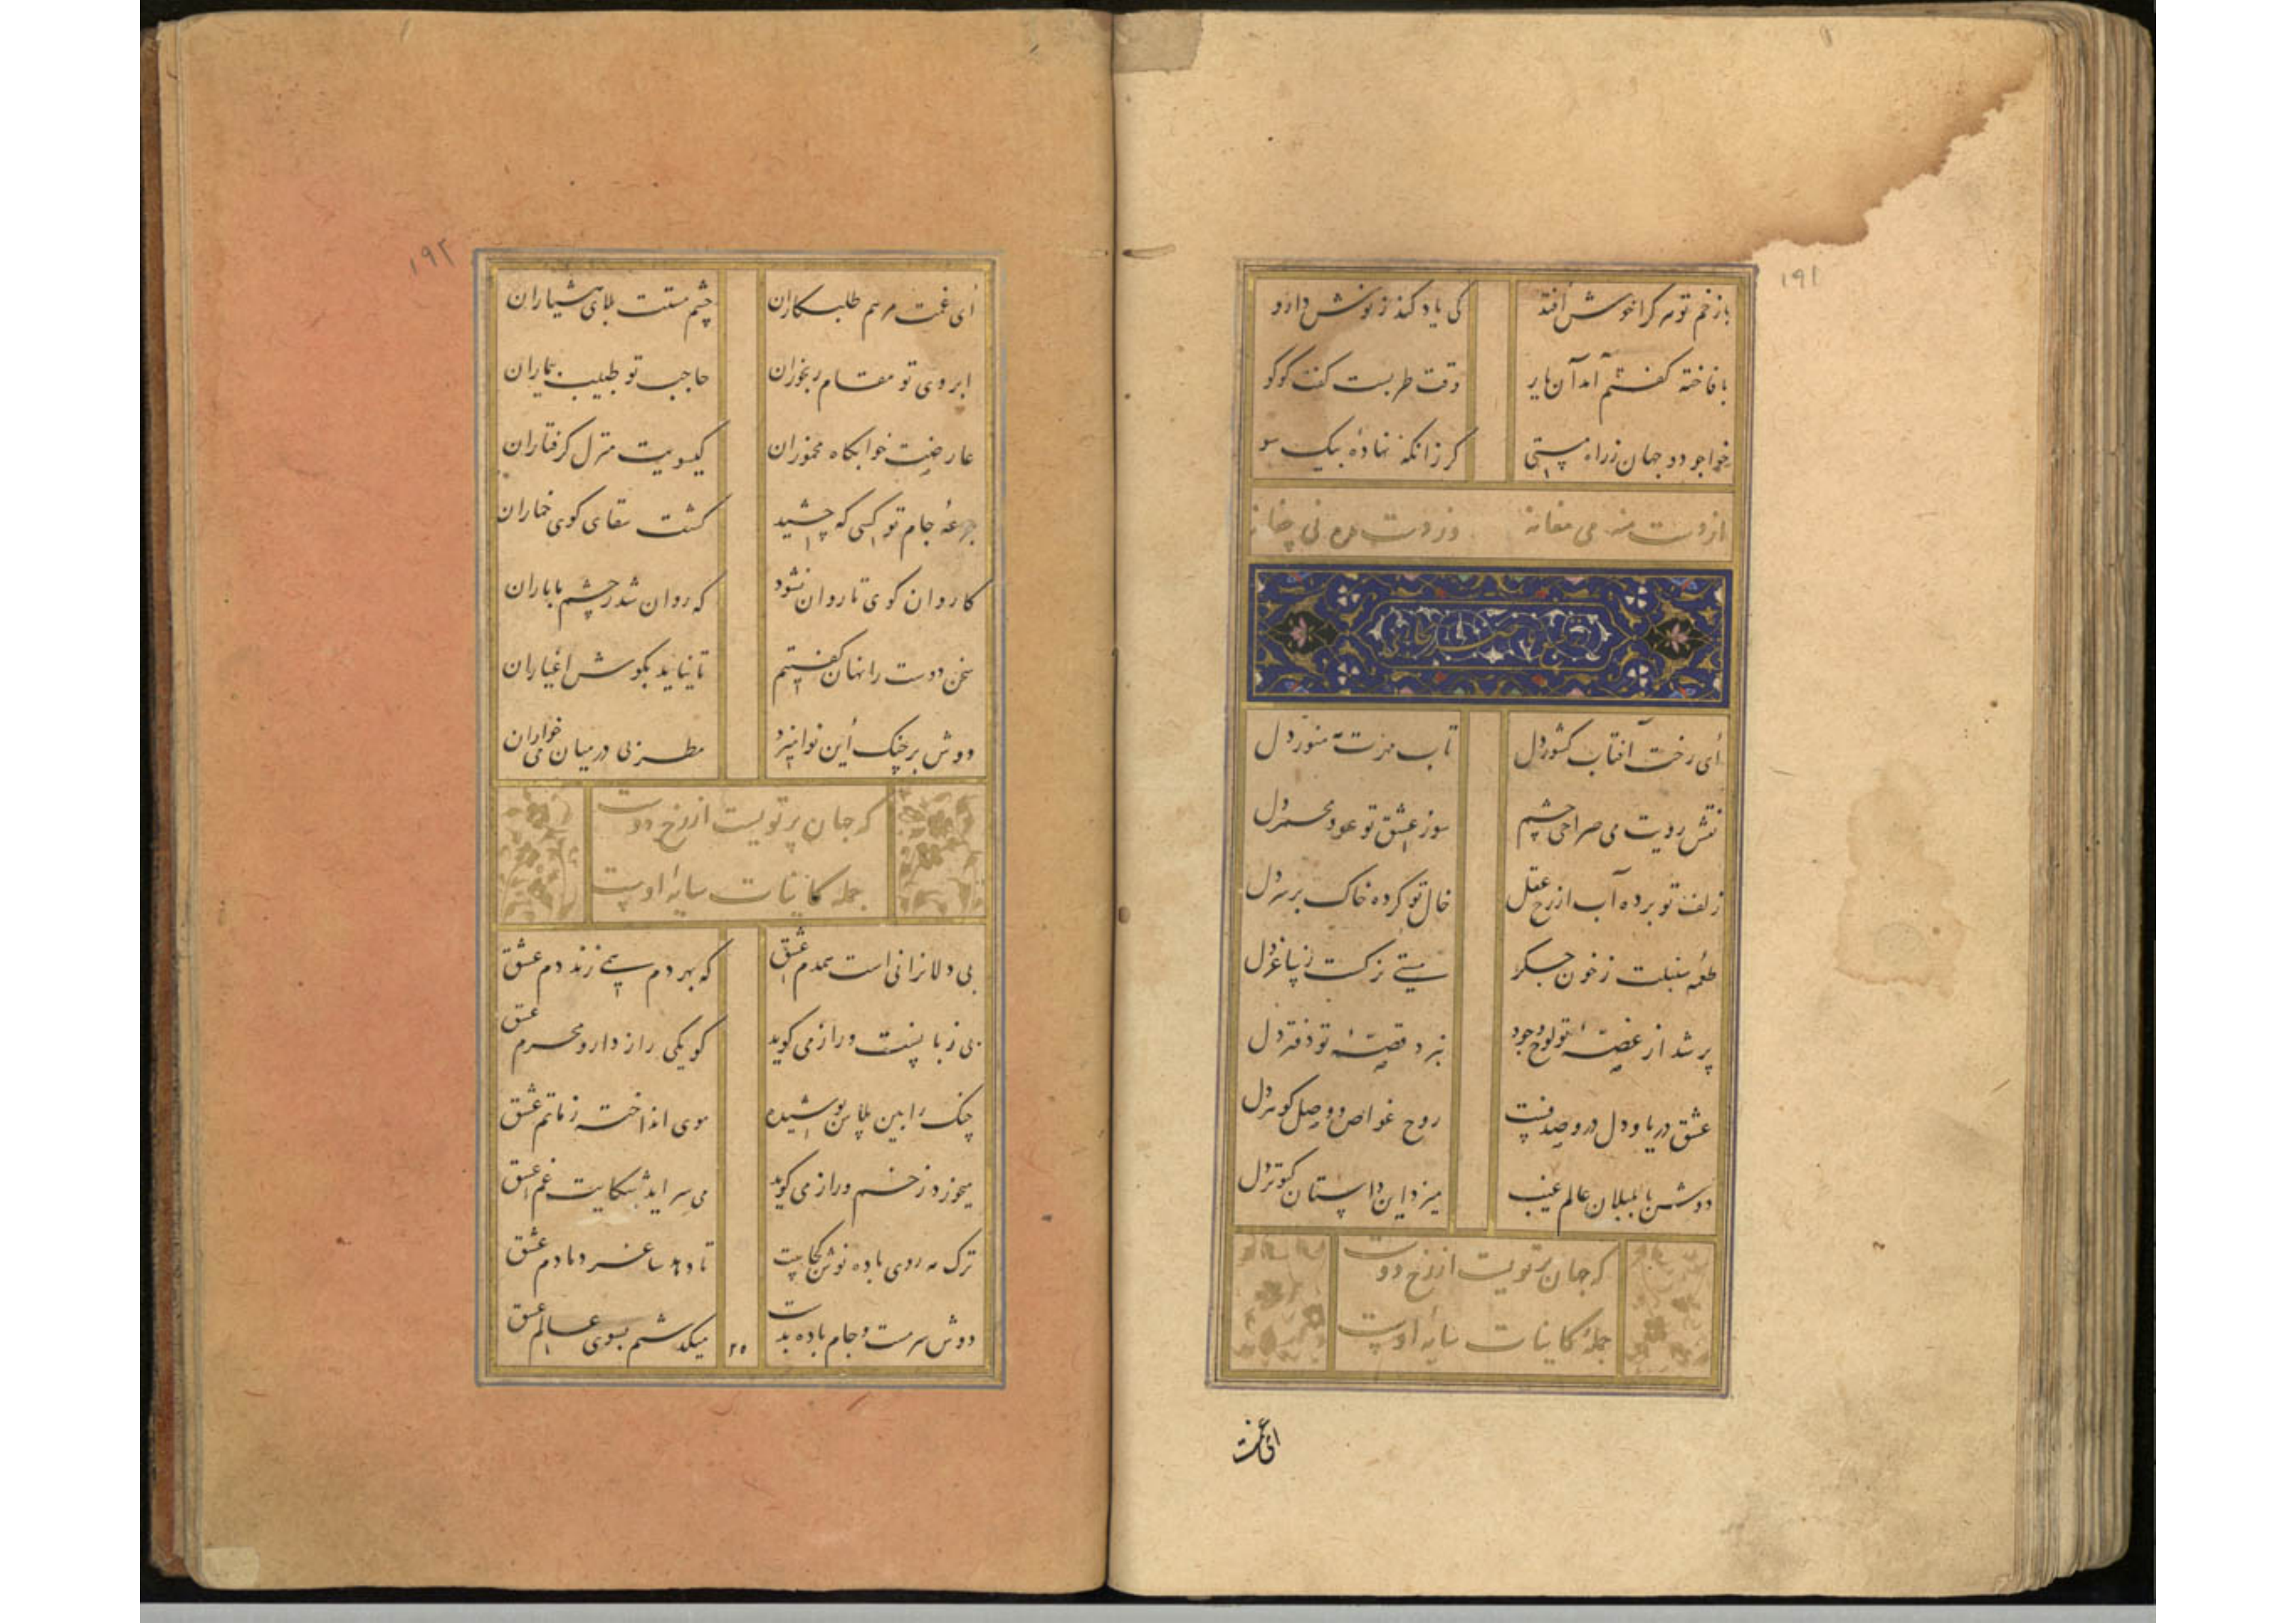 ۱۹۱
با زخم تو هر کرا خوش افتد کی یاد کند ز نوش دارو
با فاخته گفتم آمد آن یار وقت طربست گفت کوکو
خواجو دو جهان ز راه مستی کر زانکه نهاده بیک سو
از دست منه می مغانه وز دست مده نی چغانه
ای رخت آفتاب کشور دل تاب مهرت منور دل
نقش رویت می صراحی چشم سوز عشق تو عود مجمر دل
زلف تو برده آب از رخ عقل خال تو کرده خاک بر سر دل
طعمه سنبلت ز خون جگر مستی نرگست ز ساغر دل
پر شد از غصهٔ تو لوح وجود قصهٔ تو دفتر دل
عشق دریا و دل درو صدفست روح غواص و وصل گوهر دل
دوش با بلبلان عالم غیب میزد این داستان کبوتر دل
که جان پرتویست از رخ دوست
جملهٔ کاینات سایهٔ اوست
ای غمت
۱۹۲
ای غمت مرهم طلبکاران چشم مستت بلای هشیاران
ابروی تو مقام رنجوران حاجب تو طبیب بیماران
عارضت خوابگاه مخموران گیسویت منزل گرفتاران
جرعهٔ جام تو کسی که چشید گشت سقای کوی خماران
کاروان کوی تا روان نشود که روان شد ز چشم ما باران
سخن دوست را نهان گفتیم تا نیاید بگوش اغیاران
دوش بر چنگ این نوا میزد مطربی در میان می خواران
که جان پرتویست از رخ دوست
جمله کاینات سایهٔ اوست
بی دلانرا نی است همدم عشق که بهر دم همی زند دم عشق
بی زبانیست و راز می گوید کو یکی راز دار و محرم عشق
چنگ را بین پلاس پوشیده موی انداخته ز ماتم عشق
میخورد زخم و راز می گوید می سراید شکایت غم عشق
ترک مه روی باده نوش کجاست تا دهد ساغر دمادم عشق
دوش سرمست و جام باده بدست میگذشتم بسوی عالم عشق
۲۵